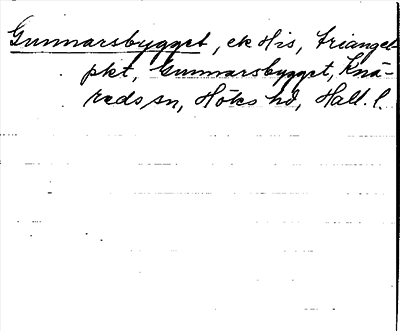 Gunnarsbygget, ek His, triangel-
pkt, Gunnarsbygget, Knä-
reds sn, Höks hd, Hall. l.